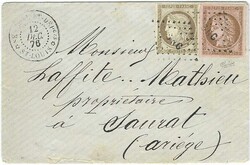 12
DEC
76
Monsieur
Laffite-Mathieu
propriétaire
à Saurat
(Ariége)